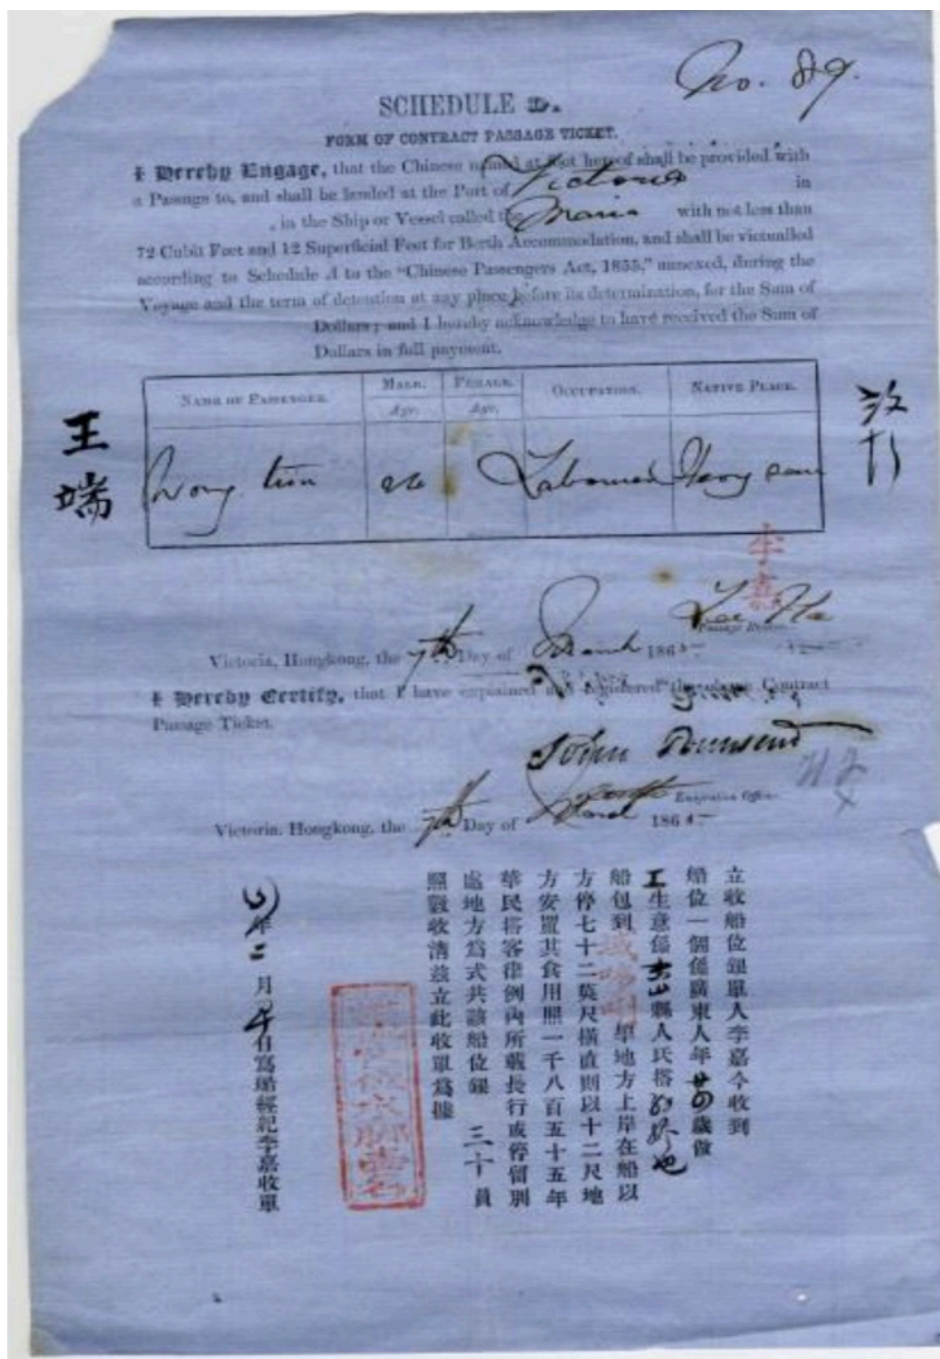 No. 89.
SCHEDULE D.
FORM OF CONTRACT PASSAGE TICKET.
I Hereby Engage, that the Chinese named at foot hereof shall be provided with
a Passage to, and shall be landed at the Port of Victoria in
, in the Ship or Vessel called the Maria with not less than
72 Cubit Feet and 12 Superficial Feet for Berth Accommodation, and shall be victualled
according to Schedule A to the "Chinese Passengers Act, 1855," annexed, during the
Voyage and the term of detention at any place before its determination, for the Sum of
Dollars; and I hereby acknowledge to have received the Sum of
Dollars in full payment.
NAME OF PASSENGER. MALE. FEMALE. OCCUPATION. NATIVE PLACE.
Age. Age.
王端
Wong 24 Labourer
李嘉
Lee
Passage Broker
Victoria, Hongkong, the 7th Day of March 1865
I Hereby Certify, that I have explained and registered the above Contract
Passage Ticket.
John Townsend
Emigration Officer
Victoria, Hongkong, the 7th Day of March 1865
立收船位銀單人李嘉今收到
船位一個係廣東人年廿四歲做
工生意係山縣人氏搭
船包到域多唎埠地方上岸在船以
方停七十二英尺橫直則以十二尺地
方安置其食用照一千八百五十五年
華民搭客律例內所載長行或停留別
處地方為式共該船位銀 三十員
照數收清茲立此收單為據
年二月日寫船經紀李嘉收單